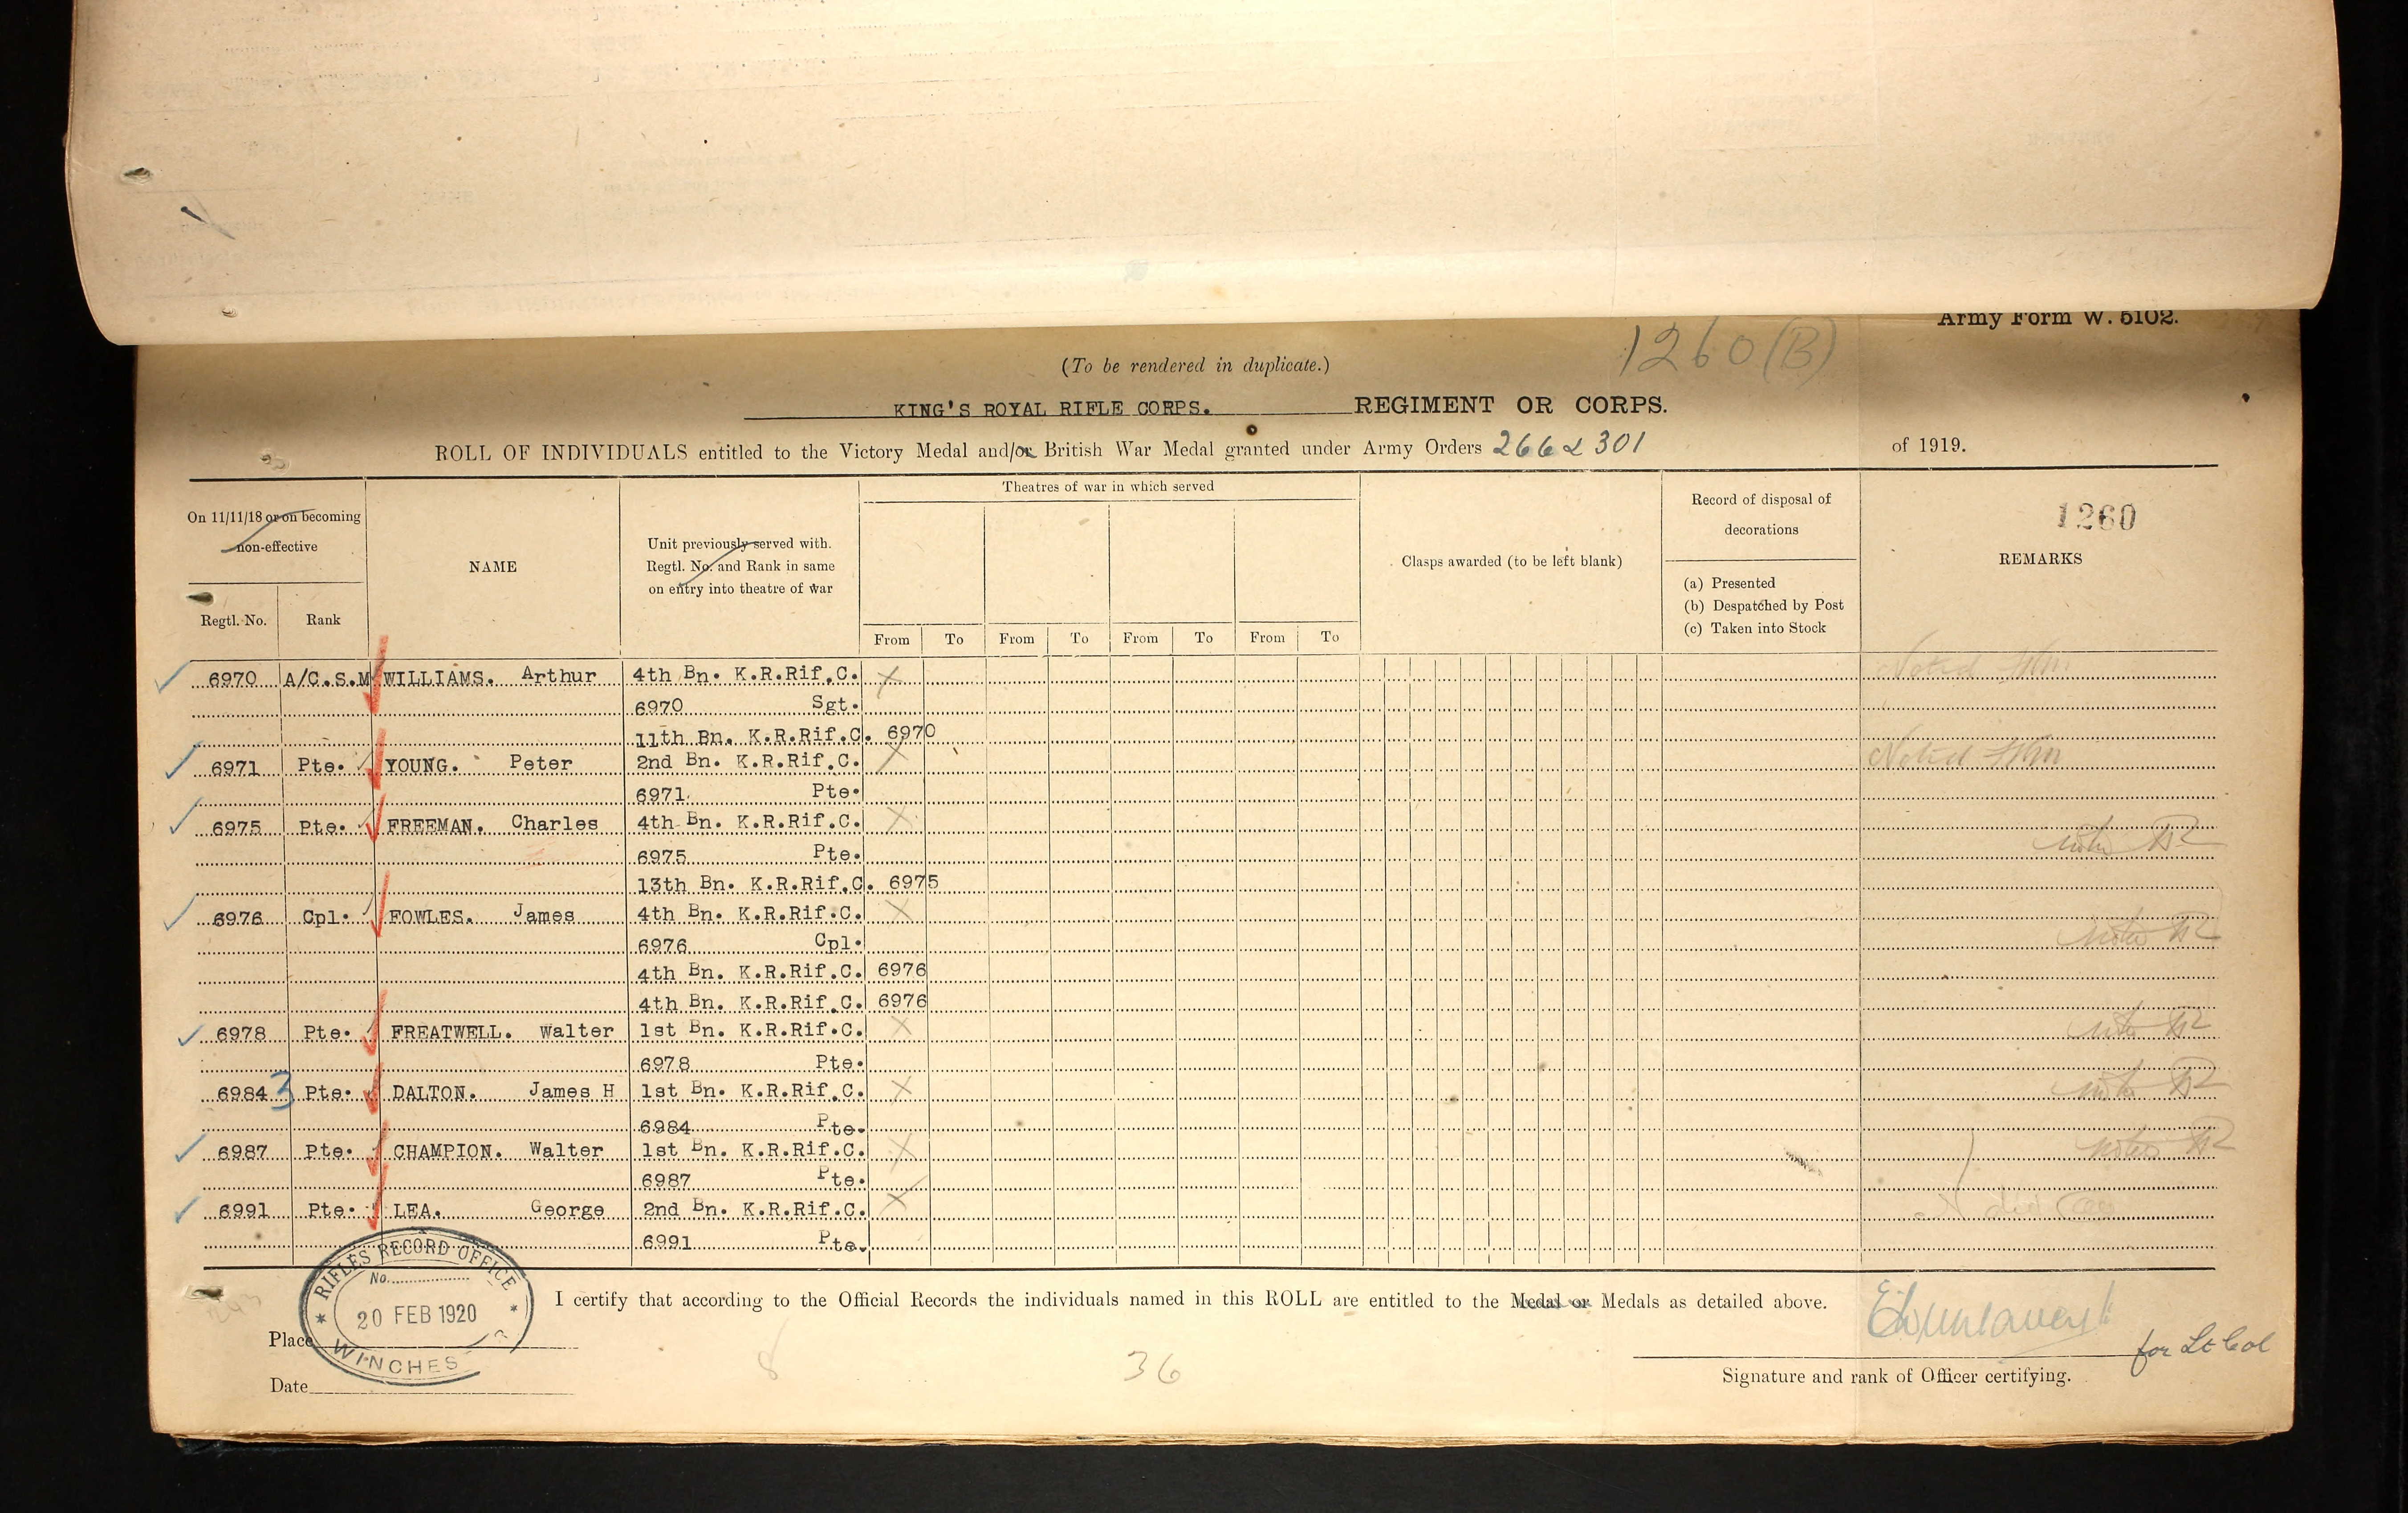 Army Form W. 5102.
1260 (B)
(To be rendered in duplicate.)
KING'S ROYAL RIFLE CORPS. REGIMENT OR CORPS.
ROLL OF INDIVIDUALS entitled to the Victory Medal and/or British War Medal granted under Army Orders 266 & 301 of 1919.
On 11/11/18 or on becoming non-effective
Regtl. No. Rank
NAME
Unit previously served with. Regtl. No. and Rank in same on entry into theatre of war
Theatres of war in which served
From To From To From To From To
Clasps awarded (to be left blank)
Record of disposal of decorations
(a) Presented
(b) Despatched by Post
(c) Taken into Stock
1260
REMARKS
6970 A/C.S.M WILLIAMS. Arthur 4th Bn. K.R.Rif.C. X Noted
6970 Sgt.
11th Bn. K.R.Rif.C. 6970
6971 Pte. YOUNG. Peter 2nd Bn. K.R.Rif.C. X Noted
6971. Pte.
6975 Pte. FREEMAN. Charles 4th Bn. K.R.Rif.C. X
6975 Pte.
13th Bn. K.R.Rif.C. 6975
6976 Cpl. FOWLES. James 4th Bn. K.R.Rif.C. X
6976 Cpl.
4th Bn. K.R.Rif.C. 6976
4th Bn. K.R.Rif.C. 6976
6978 Pte. FREATWELL. Walter 1st Bn. K.R.Rif.C. X
6978 Pte.
6984 3 Pte. DALTON. James H 1st Bn. K.R.Rif.C. X
6984 Pte.
6987 Pte. CHAMPION. Walter 1st Bn. K.R.Rif.C. X
6987 Pte.
6991 Pte. LEA. George 2nd Bn. K.R.Rif.C. X
6991 Pte.
RIFLES RECORD OFFICE
No.
20 FEB 1920
WINCHES
I certify that according to the Official Records the individuals named in this ROLL are entitled to the Medal or Medals as detailed above.
Place
for Lt Col
8 36
Signature and rank of Officer certifying.
Date